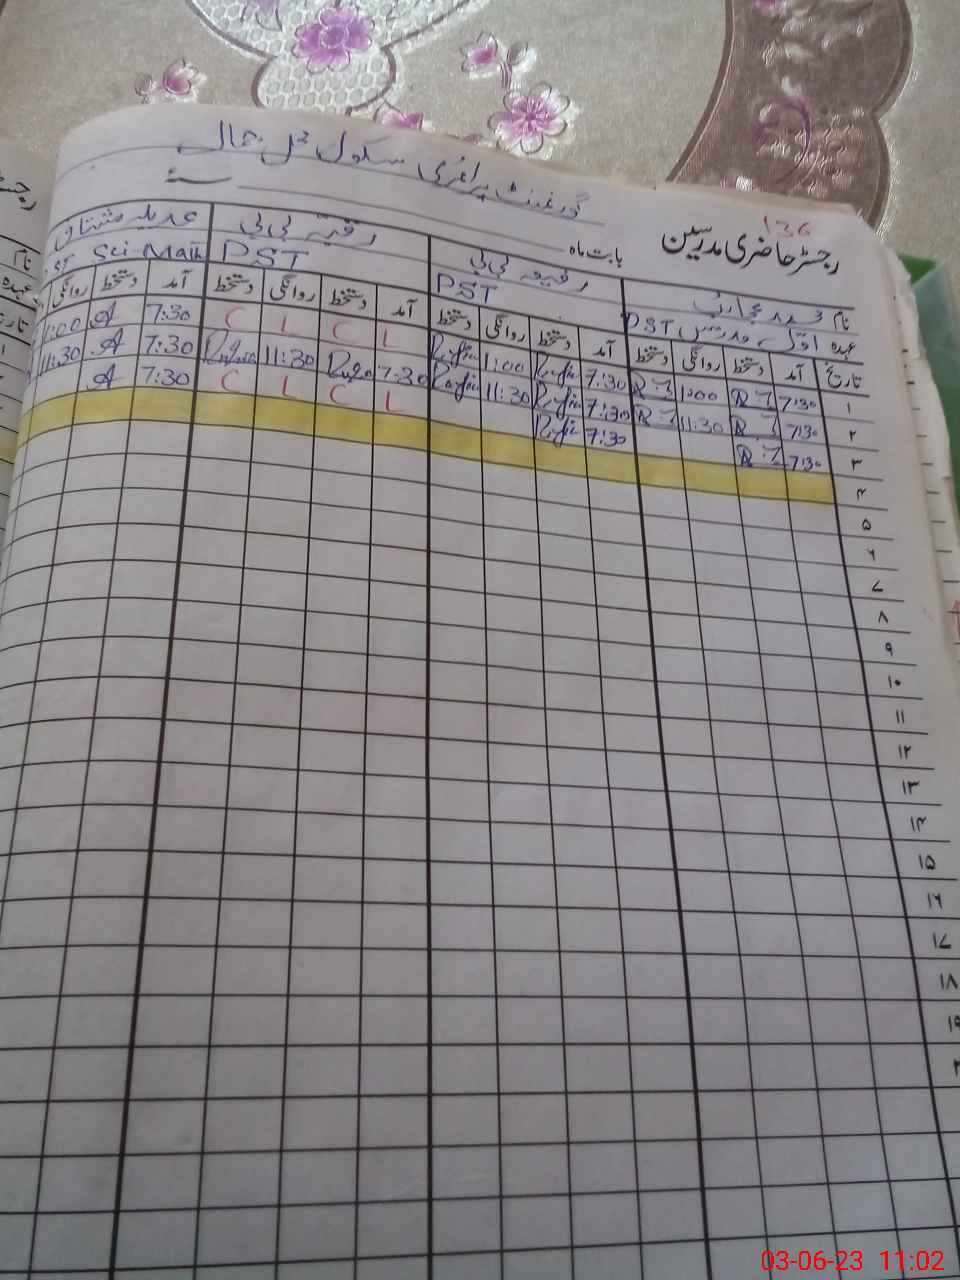 گورنمنٹ پرائمری سکول
136
رجسٹر حاضری مدرسین بابت ماہ سنہ
نام رفیعہ بی بی رقیہ بی بی عدیلہ مشتاق
عہدہ PST PST PST Sci-Math
تاریخ آمد دستخط روانگی دستخط آمد دستخط روانگی دستخط آمد دستخط روانگی دستخط آمد دستخط روانگی
۱ 7:30 1:00 7:30 Rafia 1:00 Rafia L C L C 7:30 A 1:00
۲ 7:30 11:30 7:30 Rafia 11:30 Rafia 7:30 11:30 7:30 A 11:30
۳ 7:30 7:30 Rafia L C L C 7:30 A
۴
۵
۶
۷
۸
۹
۱۰
۱۱
۱۲
۱۳
۱۴
۱۵
۱۶
۱۷
۱۸
۱۹
03-06-23 11:02